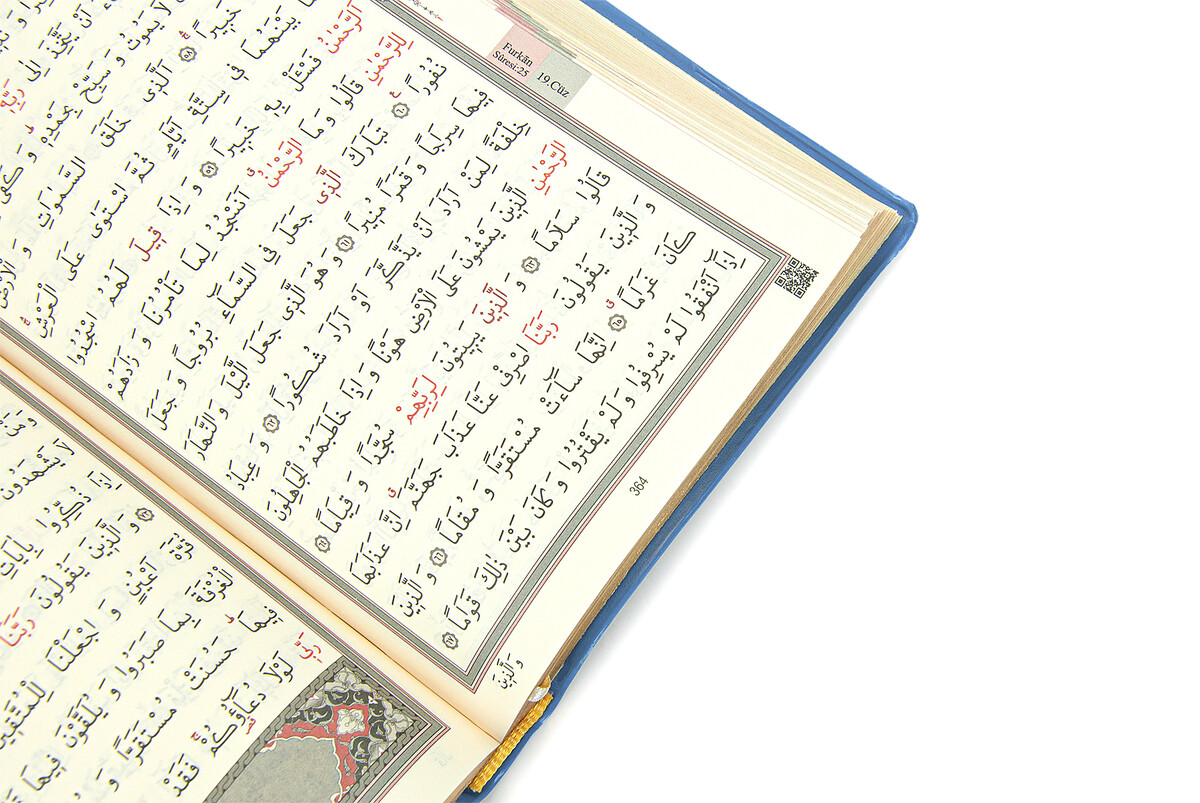 Furkān
Sûresi:25
19.Cüz
اَنْ يَتَّخِذَ اِلٰى رَبِّه۪
لَا يَمُوتُ وَ سَبِّحْ بِحَمْدِه۪ وَ كَفٰى
خَب۪يرًا ﴿٥٨﴾ اَلَّذ۪ي خَلَقَ السَّمٰوَاتِ وَ الْاَرْضَ
بَيْنَهُمَا ف۪ي سِتَّةِ اَيَّامٍ ثُمَّ اسْتَوٰى عَلَى الْعَرْشِ
اَلرَّحْمٰنُ فَسْـَٔلْ بِه۪ خَب۪يرًا ﴿٥٩﴾ وَ اِذَا ق۪يلَ لَهُمُ اسْجُدُوا
لِلرَّحْمٰنِ قَالُوا وَ مَا الرَّحْمٰنُ اَنَسْجُدُ لِمَا تَأْمُرُنَا وَ زَادَهُمْ
نُفُورًا ﴿٦٠﴾ تَبَارَكَ الَّذ۪ي جَعَلَ فِي السَّمَٓاءِ بُرُوجًا وَ جَعَلَ
ف۪يهَا سِرَاجًا وَ قَمَرًا مُن۪يرًا ﴿٦١﴾ وَ هُوَ الَّذ۪ي جَعَلَ الَّيْلَ وَ النَّهَارَ
خِلْفَةً لِمَنْ اَرَادَ اَنْ يَذَّكَّرَ اَوْ اَرَادَ شُكُورًا ﴿٦٢﴾ وَ عِبَادُ
الرَّحْمٰنِ الَّذ۪ينَ يَمْشُونَ عَلَى الْاَرْضِ هَوْنًا وَ اِذَا خَاطَبَهُمُ الْجَاهِلُونَ
قَالُوا سَلَامًا ﴿٦٣﴾ وَ الَّذ۪ينَ يَب۪يتُونَ لِرَبِّهِمْ سُجَّدًا وَ قِيَامًا ﴿٦٤﴾
وَ الَّذ۪ينَ يَقُولُونَ رَبَّنَا اصْرِفْ عَنَّا عَذَابَ جَهَنَّمَ اِنَّ عَذَابَهَا
كَانَ غَرَامًا ﴿٦٥﴾ اِنَّهَا سَٓاءَتْ مُسْتَقَرًّا وَ مُقَامًا ﴿٦٦﴾ وَ الَّذ۪ينَ
اِذَٓا اَنْفَقُوا لَمْ يُسْرِفُوا وَ لَمْ يَقْتُرُوا وَ كَانَ بَيْنَ ذٰلِكَ قَوَامًا ﴿٦٧﴾
وَ الَّذ۪ينَ
364
لَا يَشْهَدُونَ
اِذَا ذُكِّرُوا بِاٰيَاتِ
﴿٧٣﴾ وَ الَّذ۪ينَ يَقُولُونَ رَبَّنَا
قُرَّةَ اَعْيُنٍ وَ اجْعَلْنَا لِلْمُتَّق۪ينَ
الْغُرْفَةَ بِمَا صَبَرُوا وَ يُلَقَّوْنَ ف۪يهَا
ف۪يهَا حَسُنَتْ مُسْتَقَرًّا وَ
رَبّ۪ي لَوْلَا دُعَٓاؤُكُمْ فَقَدْ